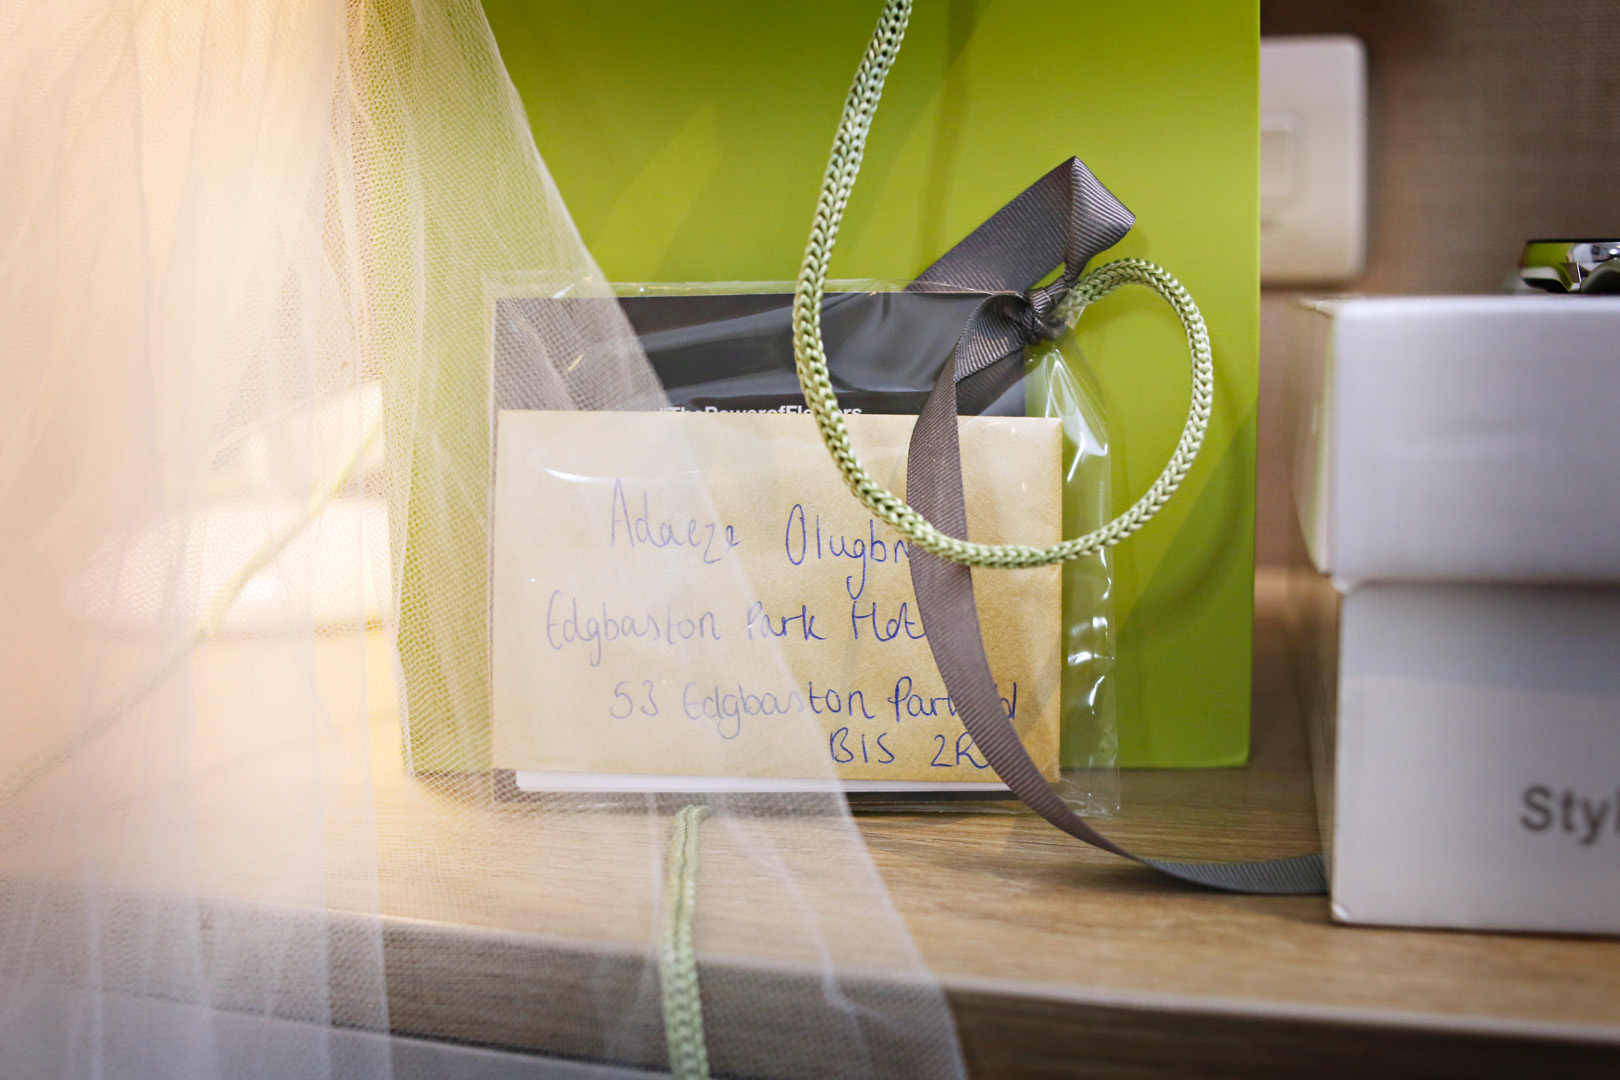 #ThePowerofFlowers
Adaeze Olugbn
Edgbaston Park Hot
53 Edgbaston Park Rd
B15 2R
Styl